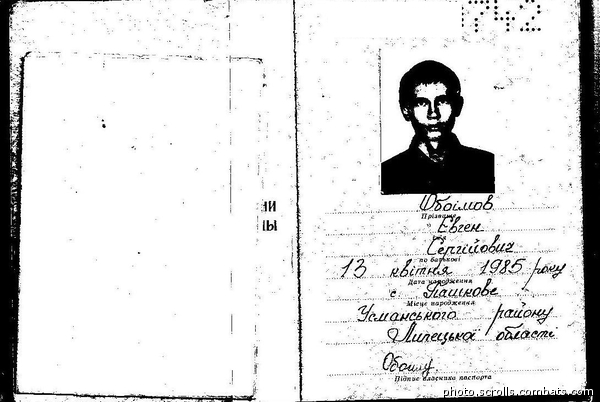 742
НИ
НЫ
Обоімов
Прізвище
Євген
Ім'я
Сергійович
по батькові
13 квітня 1985 року
Дата народження
с. Пашкове
Місце народження
Усманського району
Липецької області
Підпис власника паспорта
photo.scrolls.combats.com